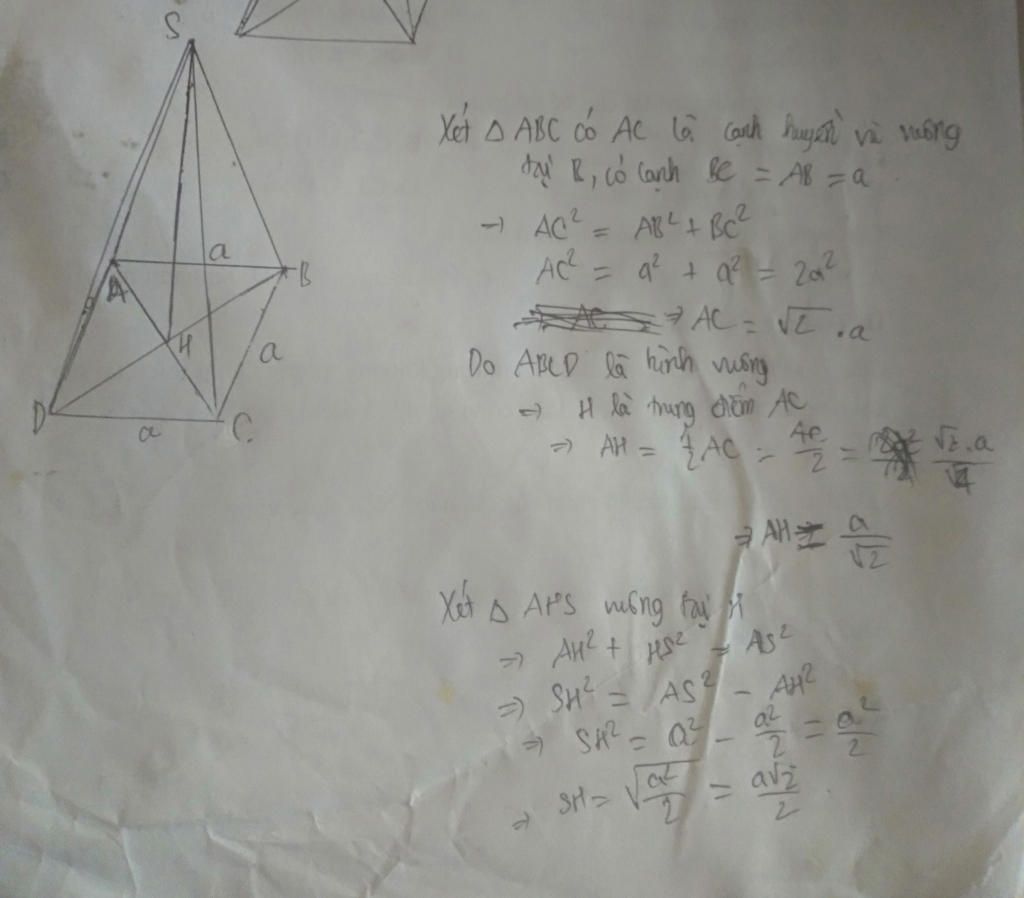 S
A
a
B
H
a
D
a
C
Xét △ ABC có AC là cạnh huyền và vuông
tại B, có cạnh BC = AB = a
→ AC² = AB² + BC²
AC² = a² + a² = 2a²
⇒ AC = √2 . a
Do ABCD là hình vuông
⇒ H là trung điểm AC
⇒ AH = 1/2 AC = AC/2 = √2.a/√4
⇒ AH = a/√2
Xét △ AHS vuông tại H
⇒ AH² + HS² = AS²
⇒ SH² = AS² - AH²
⇒ SH² = a² - a²/2 = a²/2
⇒ SH = √(a²/2) = a√2/2 .